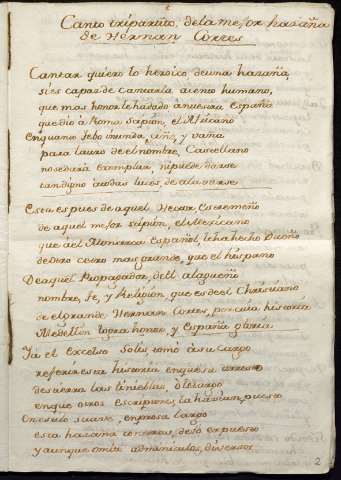 Canto tripartito, dela mejor hazaña
de Hernan Cortes
Cantar quiero lo heroico de una hazaña,
si es capaz de cantarla acento humano,
que mas honor le ha dado à nuestra España
que dio à Roma Scipion, el Africano
Enquanto Febo inunda, ciñe, y vaña
para lauro de el nombre, Castellano
no se dará exemplar, ni puede darse
tan digno à todas luces, de alavarse
Esta es pues de aquel Hector Estremeño
de aquel mejor scipion, el Mexicano
que à el Monarca Español, le ha hecho Dueño
de otro cetro mas grande, que el hispano
De aquel Propagador, de el alagueño
nombre, fe, y Religion, que es de el Christiano
de el grande Hernan Cortes, por cuia historia
Medellin logra honor, y España gloria.
Ya el Excelso Solis, tomò à su cargo
referir esta historia en que su
destierra las tinieblas, ò letargo
en que otros escriptores, la havian, puesto
En estilo suave, en prosa largo
esta hazaña con otras, dexò expuesto
y aunque omite adminiculos, diversos
2